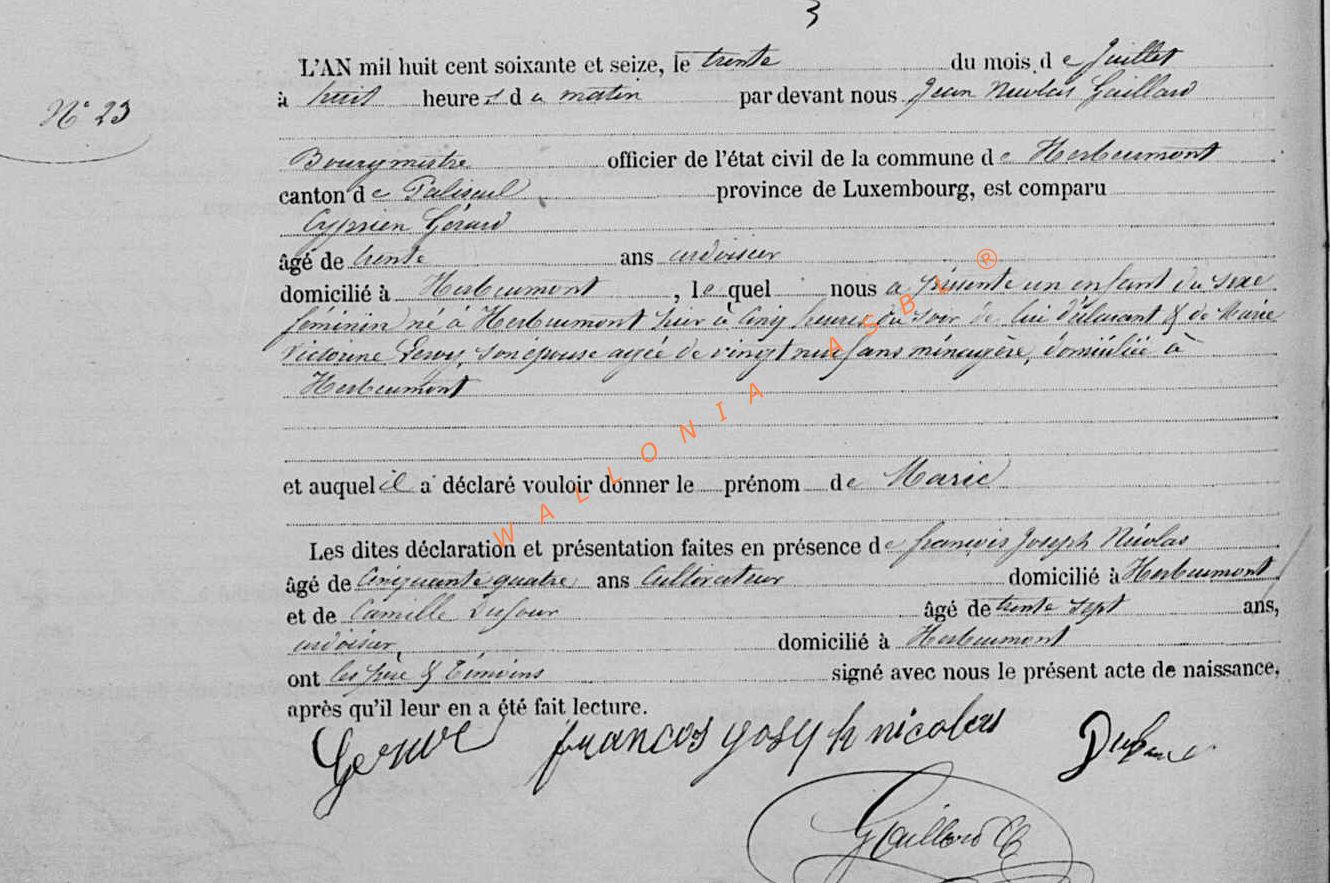 3
L'AN mil huit cent soixante et seize, le trente du mois de Juillet
N° 23
à huit heures du matin par devant nous Jean Nicolas Gaillard
Bourgmestre officier de l'état civil de la commune de Herbeumont
canton de Paliseul province de Luxembourg, est comparu
Cyprien Gérard
âgé de trente ans ardoisier
domicilié à Herbeumont, lequel nous a présenté un enfant du sexe
féminin né à Herbeumont hier à cinq heures du soir de lui déclarant & de Marie
Victorine Leroy, son épouse agée de vingt neuf ans ménagère, domiciliée à
Herbeumont
et auquel il a déclaré vouloir donner le prénom de Marie
Les dites déclaration et présentation faites en présence de françois Joseph Nicolas
âgé de Cinquante quatre ans Cultivateur domicilié à Herbeumont
et de Camille Dufour âgé de trente sept ans,
ardoisier, domicilié à Herbeumont
ont les père & témoins signé avec nous le présent acte de naissance,
après qu'il leur en a été fait lecture.
francos yosyh nicolas
Gaillard
WALLONIA ASBL ®